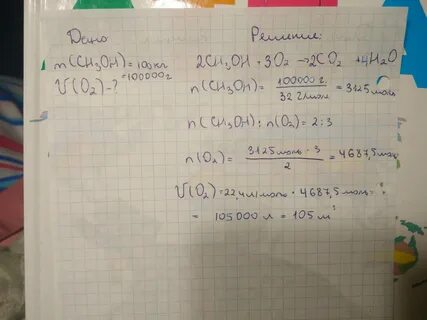 Дано
Решение:
m(CH₃OH)=100кг
=100000г
V(O₂)-?
2CH₃OH+3O₂→2CO₂+4H₂O
n(CH₃OH)= 100000г / 32 г/моль = 3125моль
n(CH₃OH):n(O₂)=2:3
n(O₂)= 3125моль·3 / 2 = 4687,5моль
V(O₂)=22,4л/моль·4687,5моль=
= 105000л=105м³